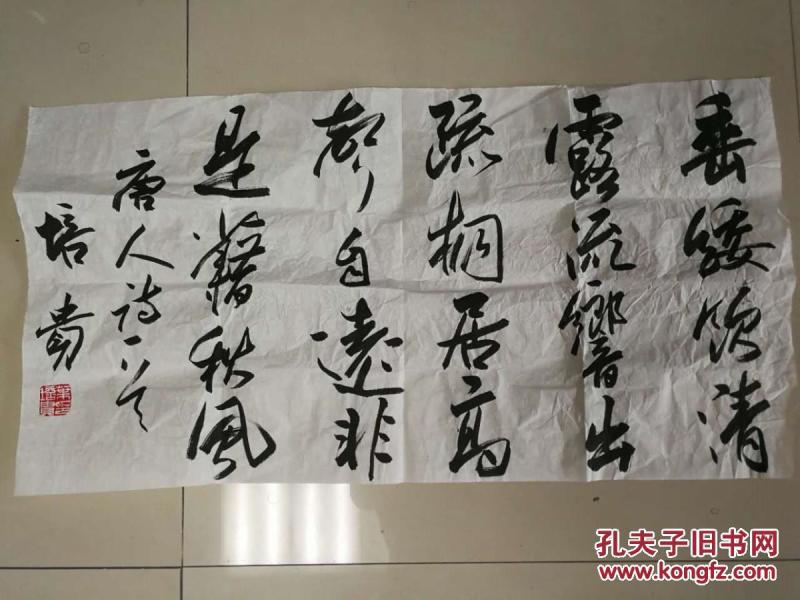 垂緌飲清
露流響出
疏桐居高
聲自遠非
是藉秋風
唐人詩一首
培貴
孔夫子旧书网
www.kongfz.com